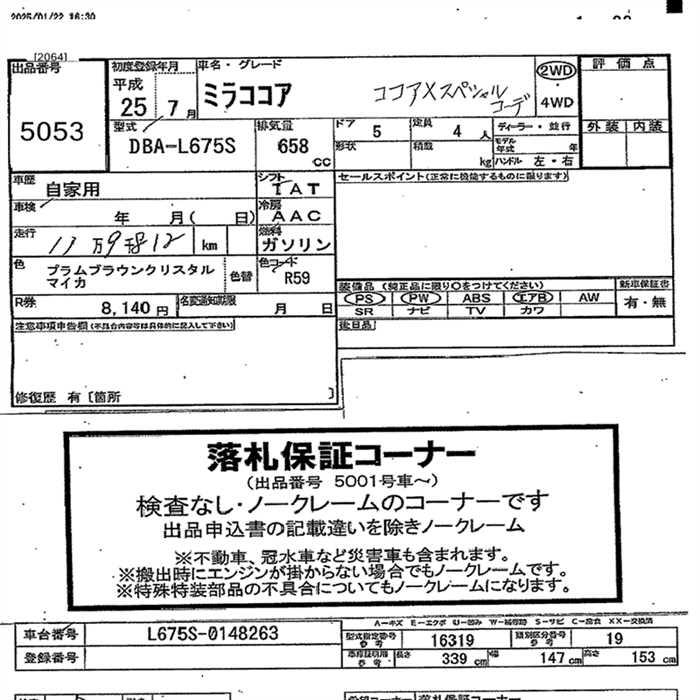 2025/01/22 16:30
[2064]
出品番号
5053
初度登録年月
平成
25 7月
車名・グレード
ミラココア ココアXスペシャルコーデ
2WD
4WD
評価点
外装 内装
型式
DBA-L675S
排気量
658
cc
ドア
5
形状
定員
4人
積載
kg
ディーラー・並行
モデル年式 年
ハンドル 左・右
車歴
自家用
シフト
IAT
車検
年 月( 日)
冷房
AAC
走行
km
燃料
ガソリン
色
プラムブラウンクリスタル
マイカ
色替
色コード
R59
R券
8,140円
名変通知期限
月 日
セールスポイント(正常に機能するものに限ります)
装備品(純正品に限り○をつけてください)
PS PW ABS エアB AW
SR ナビ TV カワ
新車保証書
有・無
後日品
注意事項申告欄(不具合内容等は具体的に記入して下さい)
修復歴 有〔箇所 〕
落札保証コーナー
(出品番号 5001号車～)
検査なし・ノークレームのコーナーです
出品申込書の記載違いを除きノークレーム
※不動車、冠水車など災害車も含まれます。
※搬出時にエンジンが掛からない場合でもノークレームです。
※特殊特装部品の不具合についてもノークレームになります。
車台番号
L675S-0148263
登録番号
型式指定番号
参考
16319
類別区分番号
参考
19
車検証明用
参考
長さ
339 cm
幅
147 cm
高さ
153 cm
落札保証コーナー